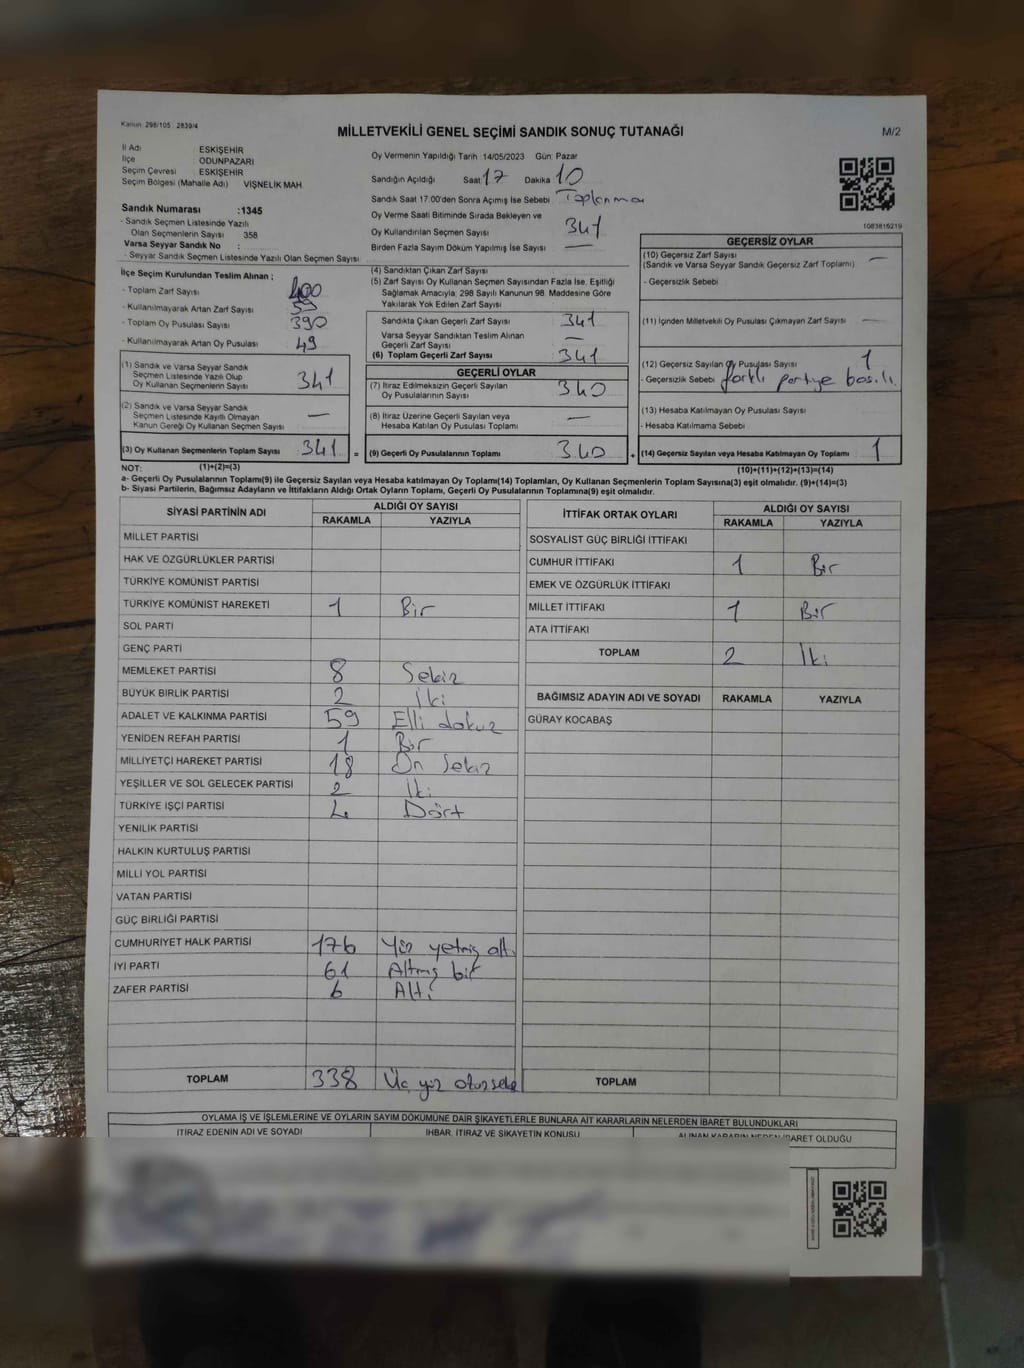 Kanun: 298/105 : 2839/4
MİLLETVEKİLİ GENEL SEÇİMİ SANDIK SONUÇ TUTANAĞI
M/2
İl Adı ESKİŞEHİR
İlçe ODUNPAZARI
Seçim Çevresi ESKİŞEHİR
Seçim Bölgesi (Mahalle Adı) VİŞNELİK MAH.
Sandık Numarası :1345
- Sandık Seçmen Listesinde Yazılı
Olan Seçmenlerin Sayısı 358
Varsa Seyyar Sandık No :
- Seyyar Sandık Seçmen Listesinde Yazılı Olan Seçmen Sayısı
Oy Vermenin Yapıldığı Tarih :14/05/2023 Gün: Pazar
Sandığın Açıldığı Saat 17 Dakika 10
Sandık Saat 17:00'den Sonra Açımış İse Sebebi Toplanma
Oy Verme Saati Bitiminde Sırada Bekleyen ve
Oy Kullandırılan Seçmen Sayısı 341
Birden Fazla Sayım Döküm Yapılmış İse Sayısı —
1083816219
İlçe Seçim Kurulundan Teslim Alınan ;
- Toplam Zarf Sayısı 400
- Kullanılmayarak Artan Zarf Sayısı 59
- Toplam Oy Pusulası Sayısı 390
- Kullanılmayarak Artan Oy Pusulası 49
(1) Sandık ve Varsa Seyyar Sandık
Seçmen Listesinde Yazılı Olup
Oy Kullanan Seçmenlerin Sayısı 341
(2) Sandık ve Varsa Seyyar Sandık
Seçmen Listesinde Kayıtlı Olmayan
Kanun Gereği Oy Kullanan Seçmen Sayısı —
(3) Oy Kullanan Seçmenlerin Toplam Sayısı 341 =
(4) Sandıktan Çıkan Zarf Sayısı
(5) Zarf Sayısı Oy Kullanan Seçmen Sayısından Fazla İse, Eşitliği
Sağlamak Amacıyla; 298 Sayılı Kanunun 98. Maddesine Göre
Yakılarak Yok Edilen Zarf Sayısı
Sandıkta Çıkan Geçerli Zarf Sayısı 341
Varsa Seyyar Sandıktan Teslim Alınan
Geçerli Zarf Sayısı —
(6) Toplam Geçerli Zarf Sayısı 341
GEÇERLİ OYLAR
(7) İtiraz Edilmeksizin Geçerli Sayılan
Oy Pusulalarının Sayısı 340
(8) İtiraz Üzerine Geçerli Sayılan veya
Hesaba Katılan Oy Pusulası Toplamı —
(9) Geçerli Oy Pusulalarının Toplamı 340 +
GEÇERSİZ OYLAR
(10) Geçersiz Zarf Sayısı —
(Sandık ve Varsa Seyyar Sandık Geçersiz Zarf Toplamı)
- Geçersizlik Sebebi
(11) İçinden Milletvekili Oy Pusulası Çıkmayan Zarf Sayısı —
(12) Geçersiz Sayılan Oy Pusulası Sayısı 1
- Geçersizlik Sebebi farklı partiye basılı
(13) Hesaba Katılmayan Oy Pusulası Sayısı
- Hesaba Katılmama Sebebi
(14) Geçersiz Sayılan veya Hesaba Katılmayan Oy Toplamı 1
NOT: (1)+(2)=(3) (10)+(11)+(12)+(13)=(14)
a- Geçerli Oy Pusulalarının Toplamı(9) ile Geçersiz Sayılan veya Hesaba katılmayan Oy Toplamı(14) Toplamları, Oy Kullanan Seçmenlerin Toplam Sayısına(3) eşit olmalıdır. (9)+(14)=(3)
b- Siyasi Partilerin, Bağımsız Adayların ve İttifakların Aldığı Ortak Oyların Toplamı, Geçerli Oy Pusulalarının Toplamına(9) eşit olmalıdır.
SİYASİ PARTİNİN ADI ALDIĞI OY SAYISI
RAKAMLA YAZIYLA
MİLLET PARTİSİ
HAK VE ÖZGÜRLÜKLER PARTİSİ
TÜRKİYE KOMÜNİST PARTİSİ
TÜRKİYE KOMÜNİST HAREKETİ 1 Bir
SOL PARTİ
GENÇ PARTİ
MEMLEKET PARTİSİ 8 Sekiz
BÜYÜK BİRLİK PARTİSİ 2 İki
ADALET VE KALKINMA PARTİSİ 59 Elli dokuz
YENİDEN REFAH PARTİSİ 1 Bir
MİLLİYETÇİ HAREKET PARTİSİ 18 On Sekiz
YEŞİLLER VE SOL GELECEK PARTİSİ 2 İki
TÜRKİYE İŞÇİ PARTİSİ 4 Dört
YENİLİK PARTİSİ
HALKIN KURTULUŞ PARTİSİ
MİLLİ YOL PARTİSİ
VATAN PARTİSİ
GÜÇ BİRLİĞİ PARTİSİ
CUMHURİYET HALK PARTİSİ 176 Yüz yetmiş altı
İYİ PARTİ 61 Altmış bir
ZAFER PARTİSİ 6 Altı
TOPLAM 338 Üç yüz otuz seki
İTTİFAK ORTAK OYLARI ALDIĞI OY SAYISI
RAKAMLA YAZIYLA
SOSYALİST GÜÇ BİRLİĞİ İTTİFAKI
CUMHUR İTTİFAKI 1 Bir
EMEK VE ÖZGÜRLÜK İTTİFAKI
MİLLET İTTİFAKI 1 Bir
ATA İTTİFAKI
TOPLAM 2 İki
BAĞIMSIZ ADAYIN ADI VE SOYADI RAKAMLA YAZIYLA
GÜRAY KOCABAŞ
TOPLAM
OYLAMA İŞ VE İŞLEMLERİNE VE OYLARIN SAYIM DÖKÜMÜNE DAİR ŞİKAYETLERLE BUNLARA AİT KARARLARIN NELERDEN İBARET BULUNDUKLARI
İTİRAZ EDENİN ADI VE SOYADI İHBAR, İTİRAZ VE ŞİKAYETİN KONUSU ALINAN KARARIN NEDEN İBARET OLDUĞU